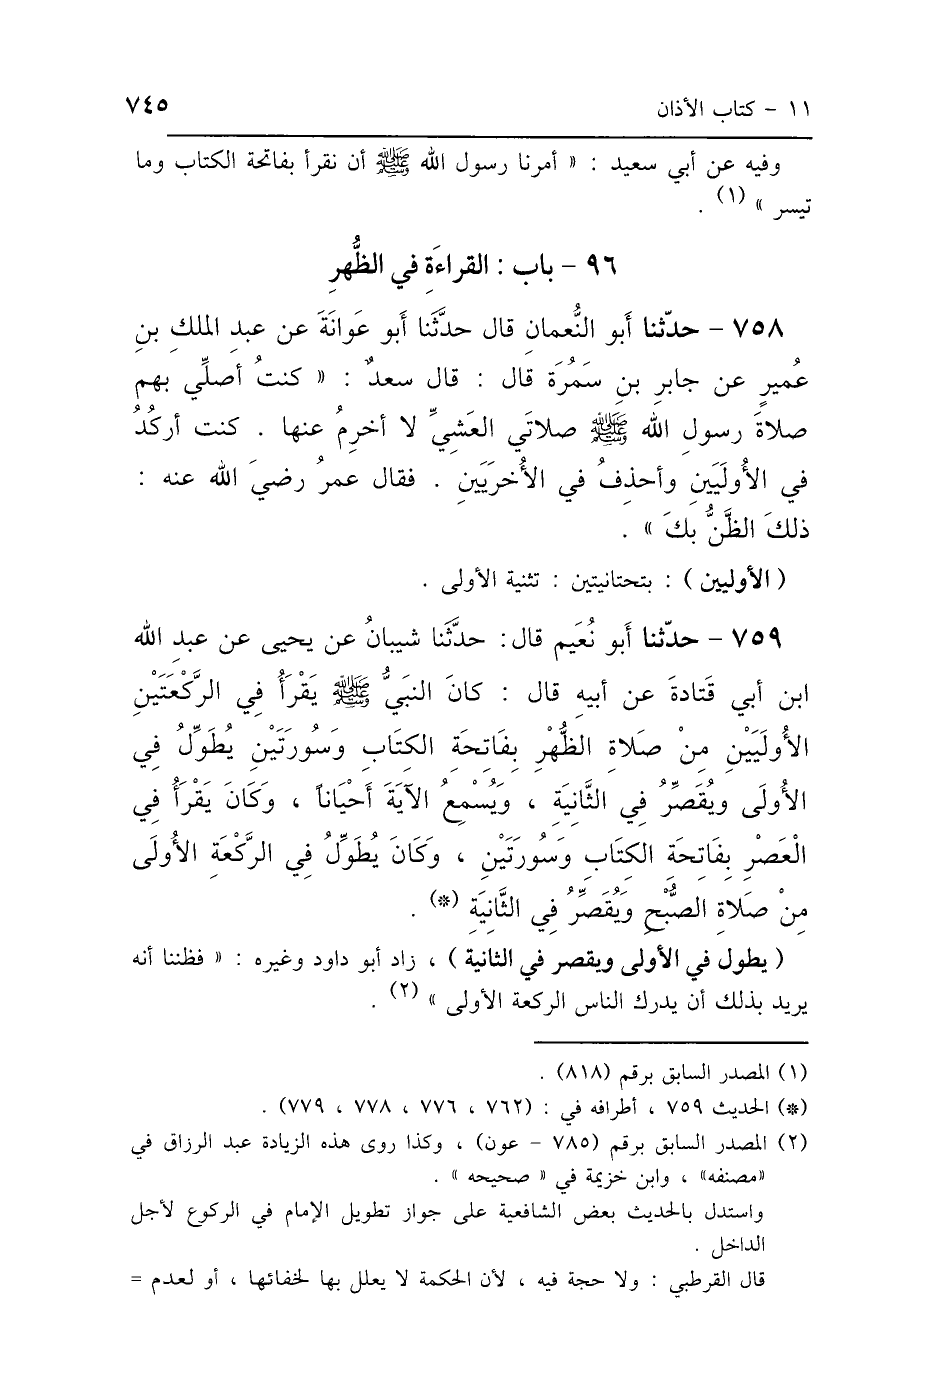 ١١ - كتاب الأذان ٧٤٥
وفيه عن أبي سعيد : « أمرنا رسول الله ﷺ أن نقرأ بفاتحة الكتاب وما
تيسر » (١) .
٩٦ - باب : القراءَةِ في الظُّهرِ
٧٥٨ - حدّثنا أبو النُّعمانِ قال حدَّثَنا أبو عَوانَةَ عن عبدِ الملكِ بنِ
عُميرٍ عن جابرِ بنِ سَمُرَة قال : قال سعدٌ : « كنتُ أصلِّي بهم
صلاةَ رسولِ الله ﷺ صلاتَي العَشيِّ لا أخرِمُ عنها . كنت أركُدُ
في الأُولَيَينِ وأحذِفُ في الأُخرَيَينِ . فقال عمرُ رضيَ الله عنه :
ذلكَ الظَّنُّ بكَ » .
( الأوليين ) : بتحتانيتين : تثنية الأولى .
٧٥٩ - حدّثنا أبو نُعَيم قال: حدَّثَنا شيبانُ عن يحيى عن عبدِ الله
ابن أبي قَتادةَ عن أبيهِ قال : كانَ النبَيُّ ﷺ يَقْرَأُ فِي الرَّكْعَتَيْنِ
الأُولَيَيْنِ مِنْ صَلاةِ الظُّهْرِ بِفَاتحَةِ الكتَابِ وَسُورَتَيْنِ يُطَوِّلُ فِي
الأُولَى ويُقَصِّرُ فِي الثَّانِيَةِ ، وَيُسْمِعُ الآيَةَ أَحْيَاناً ، وَكَانَ يَقْرَأُ فِي
الْعَصْرِ بِفَاتِحَةِ الكتَابِ وَسُورَتَيْنِ ، وكَانَ يُطَوِّلُ فِي الرَّكْعَةِ الأُولَى
مِنْ صَلاةِ الصُّبْحِ وَيُقَصِّرُ فِي الثَّانِيَةِ (*) .
( يطول في الأولى ويقصر في الثانية ) ، زاد أبو داود وغيره : « فظننا أنه
يريد بذلك أن يدرك الناس الركعة الأولى » (٢) .
(١) المصدر السابق برقم (٨١٨) .
(*) الحديث ٧٥٩ ، أطرافه في : (٧٦٢ ، ٧٧٦ ، ٧٧٨ ، ٧٧٩) .
(٢) المصدر السابق برقم (٧٨٥ - عون) ، وكذا روى هذه الزيادة عبد الرزاق في
«مصنفه» ، وابن خزيمة في « صحيحه » .
واستدل بالحديث بعض الشافعية على جواز تطويل الإمام في الركوع لأجل
الداخل .
قال القرطبي : ولا حجة فيه ، لأن الحكمة لا يعلل بها لخفائها ، أو لعدم =